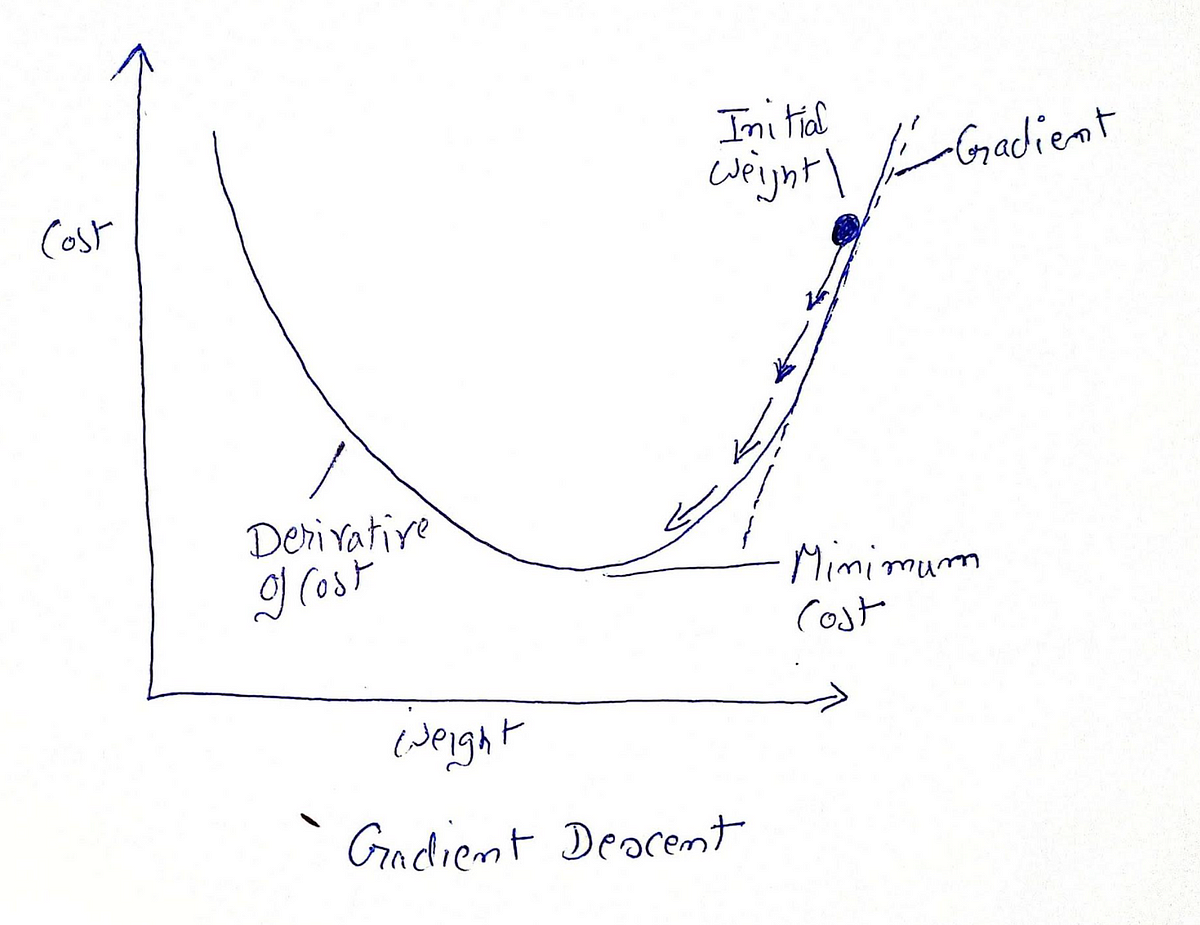 Initial
Weight
Gradient
Cost
Derivative
of Cost
Minimum
Cost
Weight
Gradient Descent